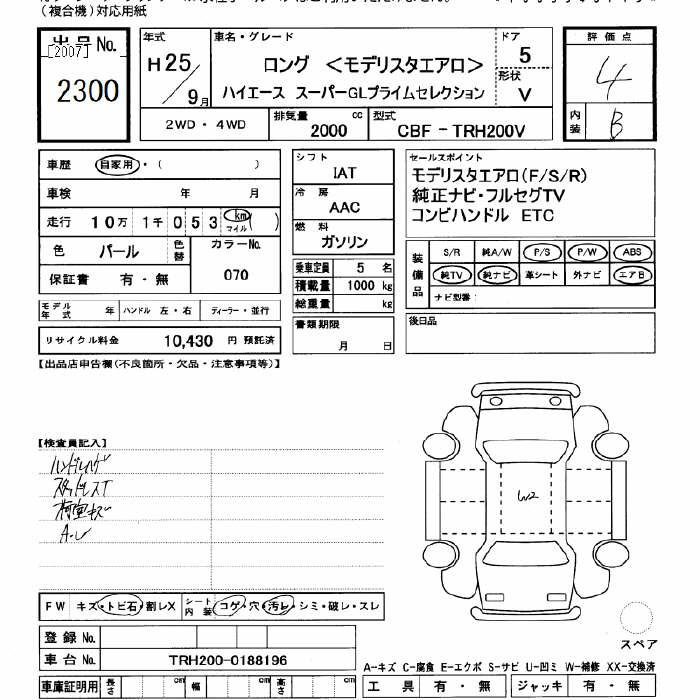 （複合機）対応用紙
出品No.
[2007]
2300
年式
H25/9月
車名・グレード
ロング ＜モデリスタエアロ＞
ハイエース スーパーGLプライムセレクション
ドア
5
形状
V
評価点
4
内装
B
2WD・4WD
排気量
2000 cc
型式
CBF-TRH200V
車歴 自家用・（ ）
車検 年 月
走行 10万 1千 0 5 3 km マイル ( )
色 パール 色替
カラーNo.
070
保証書 有・無
シフト
IAT
冷房
AAC
燃料
ガソリン
乗車定員 5 名
積載量 1000 kg
総重量 kg
書類期限
月 日
セールスポイント
モデリスタエアロ(F/S/R)
純正ナビ・フルセグTV
コンビハンドル ETC
装備品
S/R 純A/W P/S P/W ABS
純TV 純ナビ 革シート 外ナビ エアB
ナビ型番：
後日品
モデル年式 年 ハンドル 左・右 ディーラー・並行
リサイクル料金 10,430 円 預託済
【出品店申告欄(不良箇所・欠品・注意事項等)】
【検査員記入】
ハンドルハゲ
スタッドレスT
荷室キズ
A.U
W2
FW キズ・トビ石・割レX
シート内装 コゲ・穴・汚レ・シミ・破レ・スレ
登録No.
車台No. TRH200-0188196
車庫証明用 長さ cm 幅 cm 高さ cm
スペア
A-キズ C-腐食 E-エクボ S-サビ U-凹ミ W-補修 XX-交換済
工具 有・無 ジャッキ 有・無